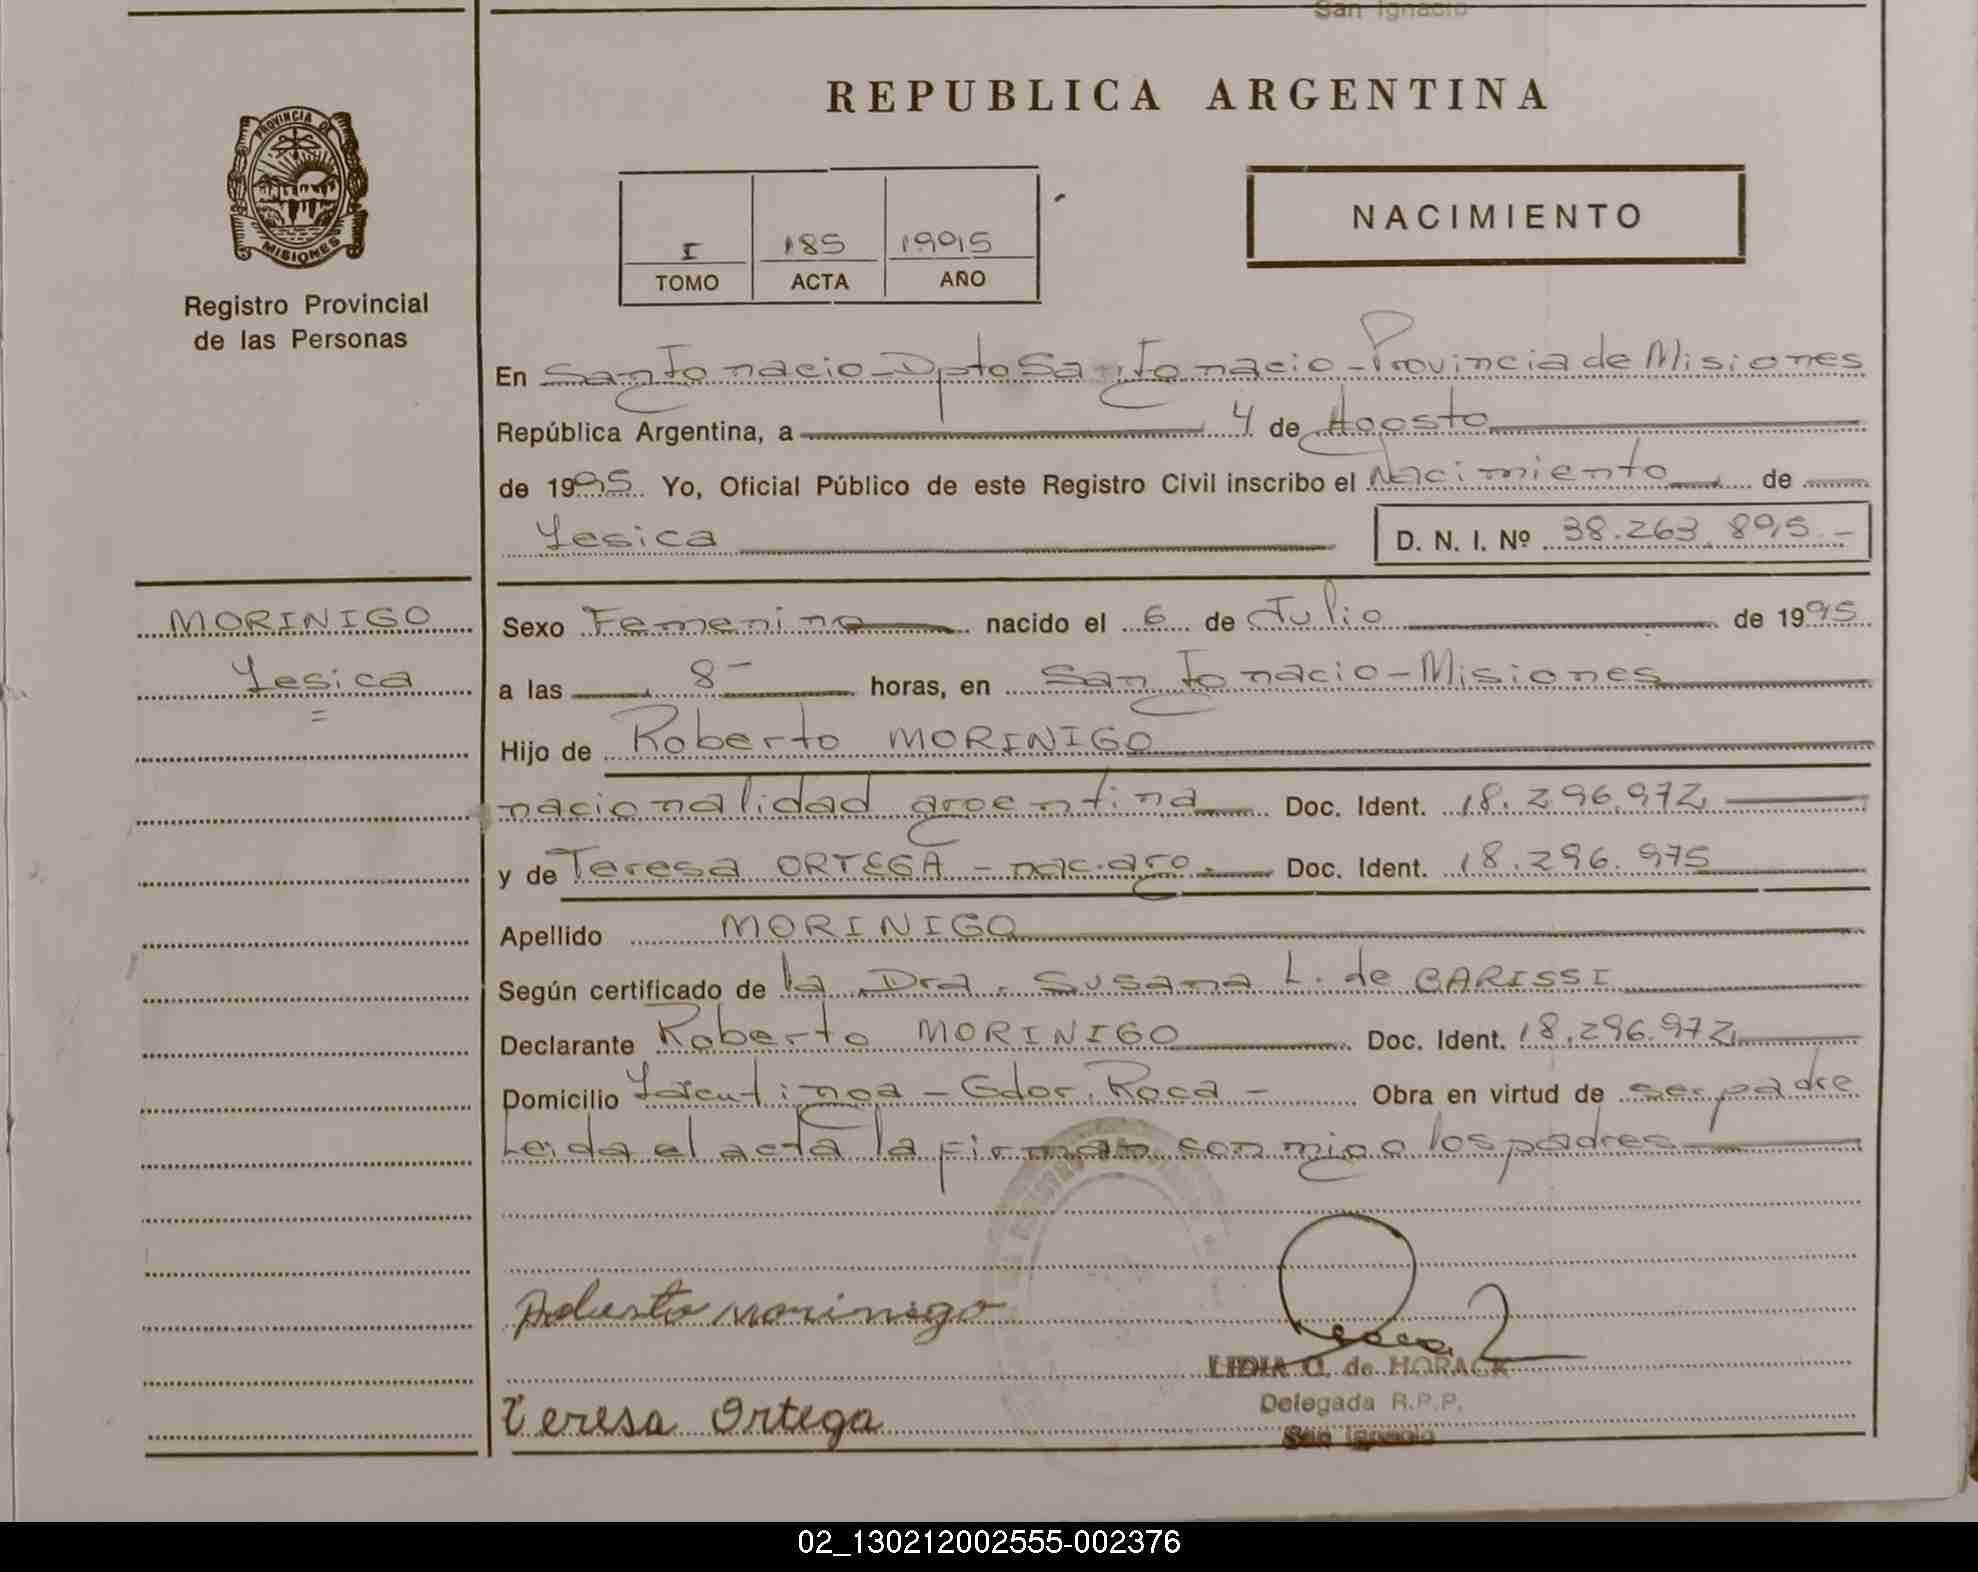 San Ignacio
REPUBLICA ARGENTINA
PROVINCIA DE
MISIONES
Registro Provincial
de las Personas
I 185 1995
TOMO ACTA AÑO
NACIMIENTO
En San Ignacio - Dpto San Ignacio - Provincia de Misiones
República Argentina, a 4 de Agosto
de 1995. Yo, Oficial Público de este Registro Civil inscribo el Nacimiento de
Yesica D. N. I. Nº 38.263.895.-
MORINIGO
Yesica
=
Sexo Femenino nacido el 6 de Julio de 1995
a las 8- horas, en San Ignacio - Misiones
Hijo de Roberto MORINIGO
nacionalidad argentina Doc. Ident. 18.296.972
y de Teresa ORTEGA - nac. arg. Doc. Ident. 18.296.975
Apellido MORINIGO
Según certificado de la Dra. Susana L. de
Declarante Roberto MORINIGO Doc. Ident. 18.296.972
Domicilio - Gdor. Roca - Obra en virtud de ser padre
Leida el acta la firman conmigo los padres
Roberto Morinigo
LIDIA C. de HORACK
Delegada R.P.P.
San Ignacio
Teresa Ortega
02_130212002555-002376